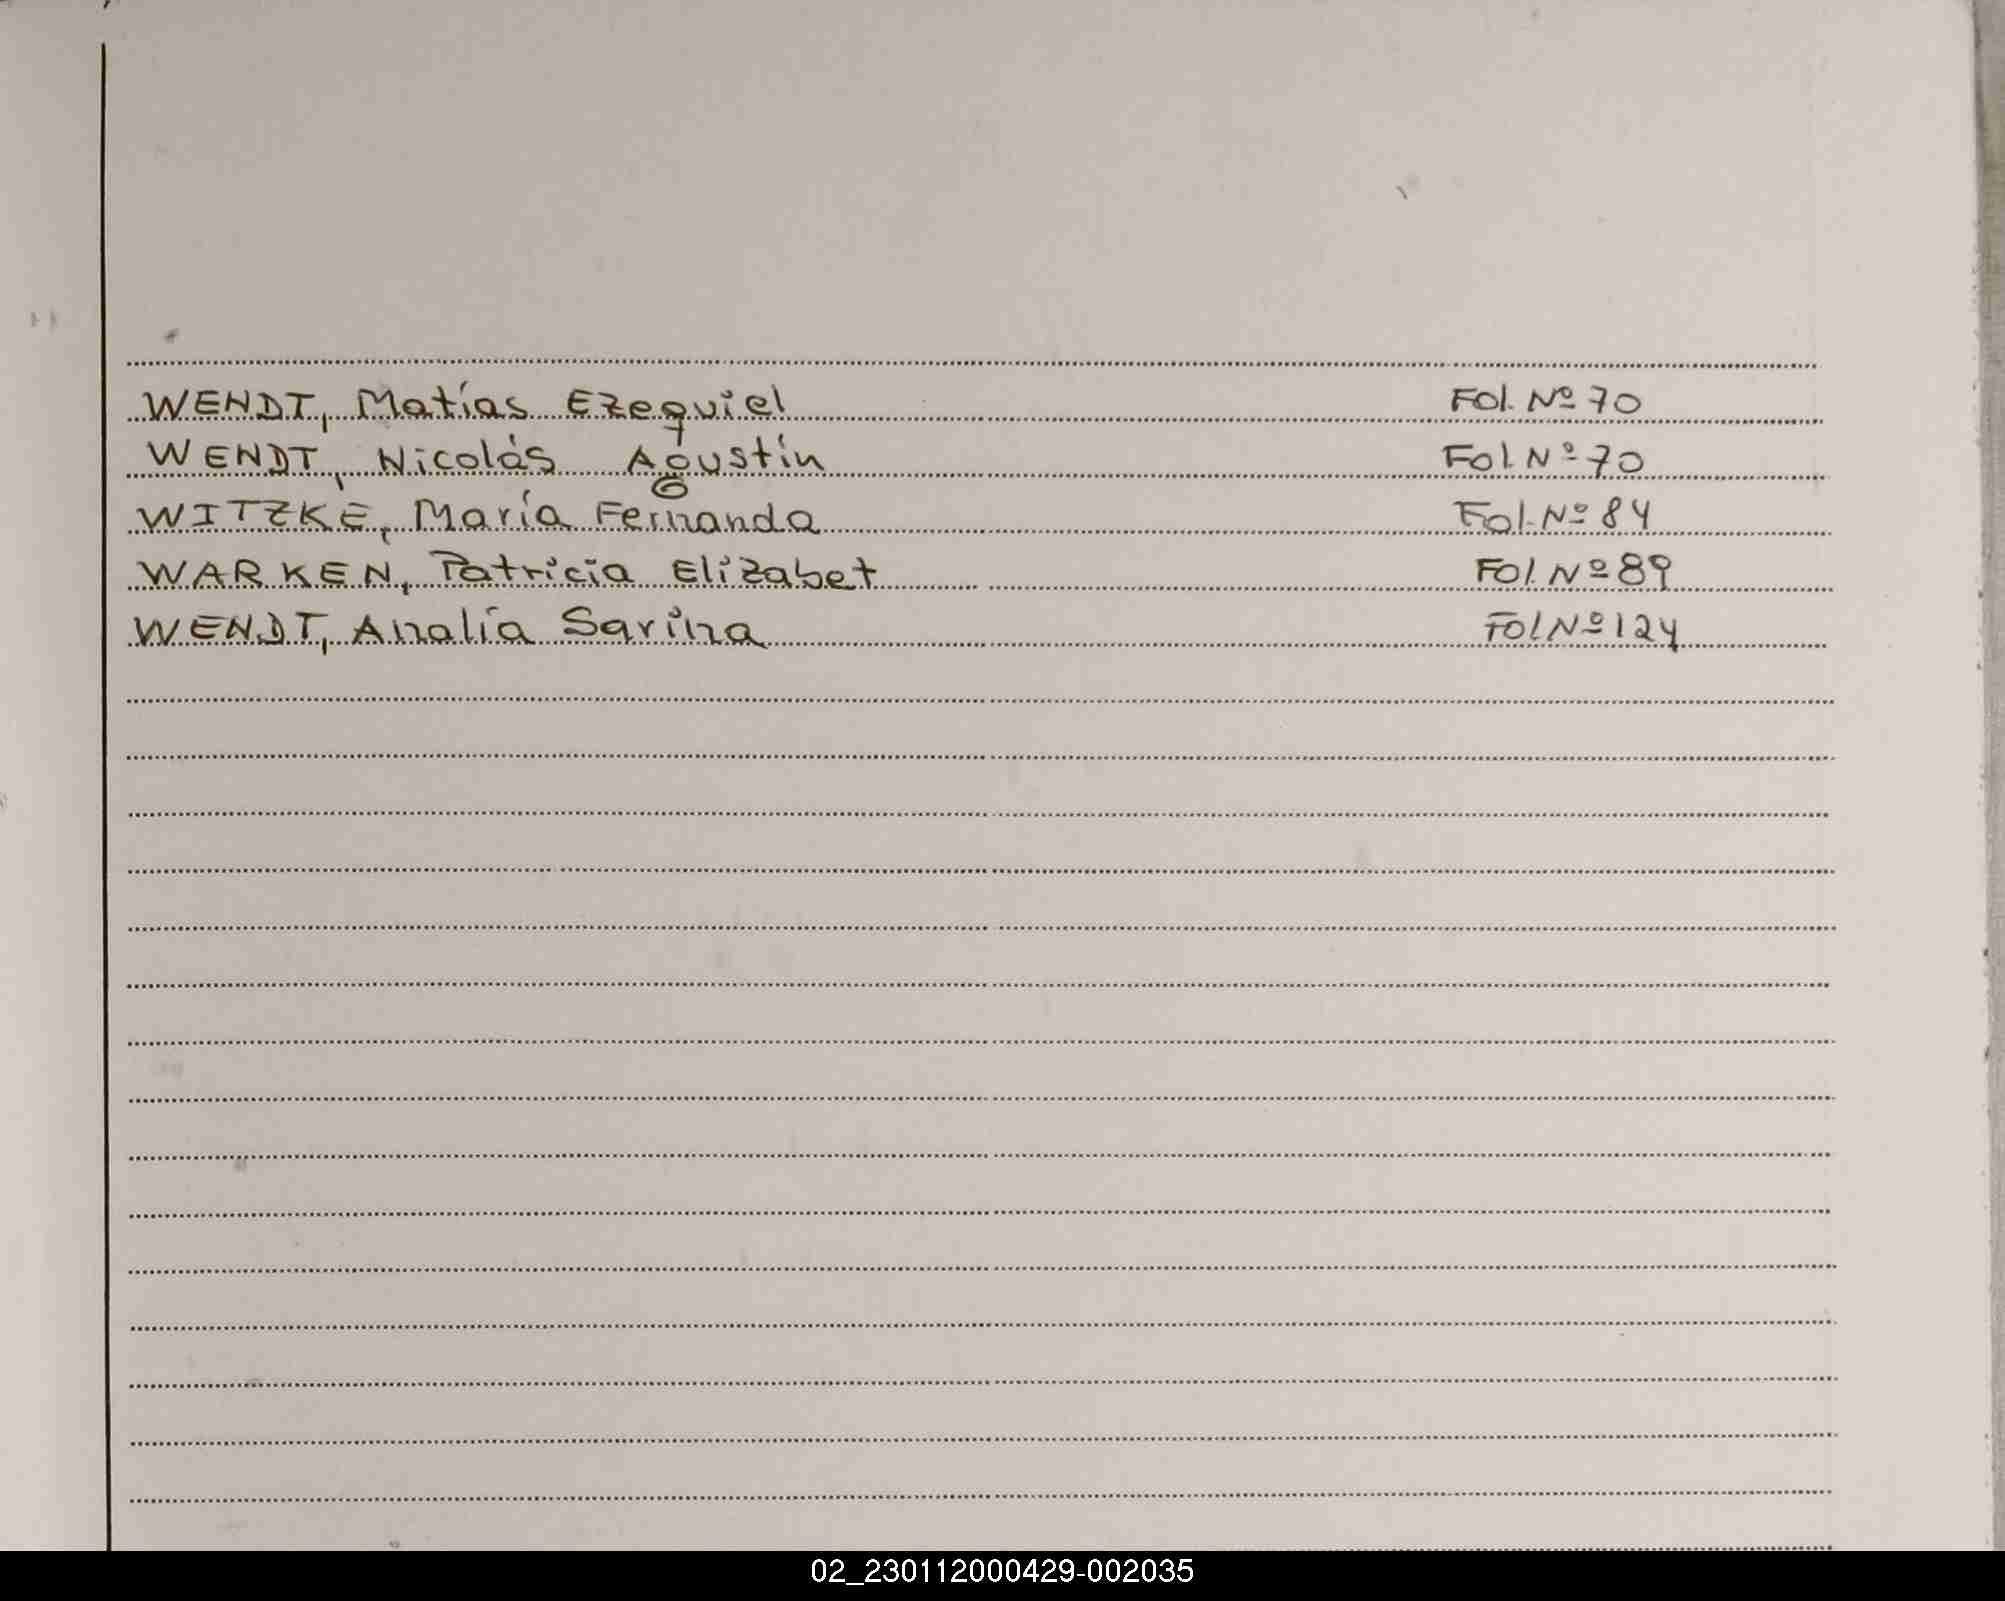 WENDT, Matías Ezequiel Fol. Nº 70
WENDT, Nicolás Agustín Fol Nº 70
WITZKE, María Fernanda Fol. Nº 84
WARKEN, Patricia Elizabet Fol. Nº 89
WENDT, Analía Sarina Fol Nº 124
02_230112000429-002035